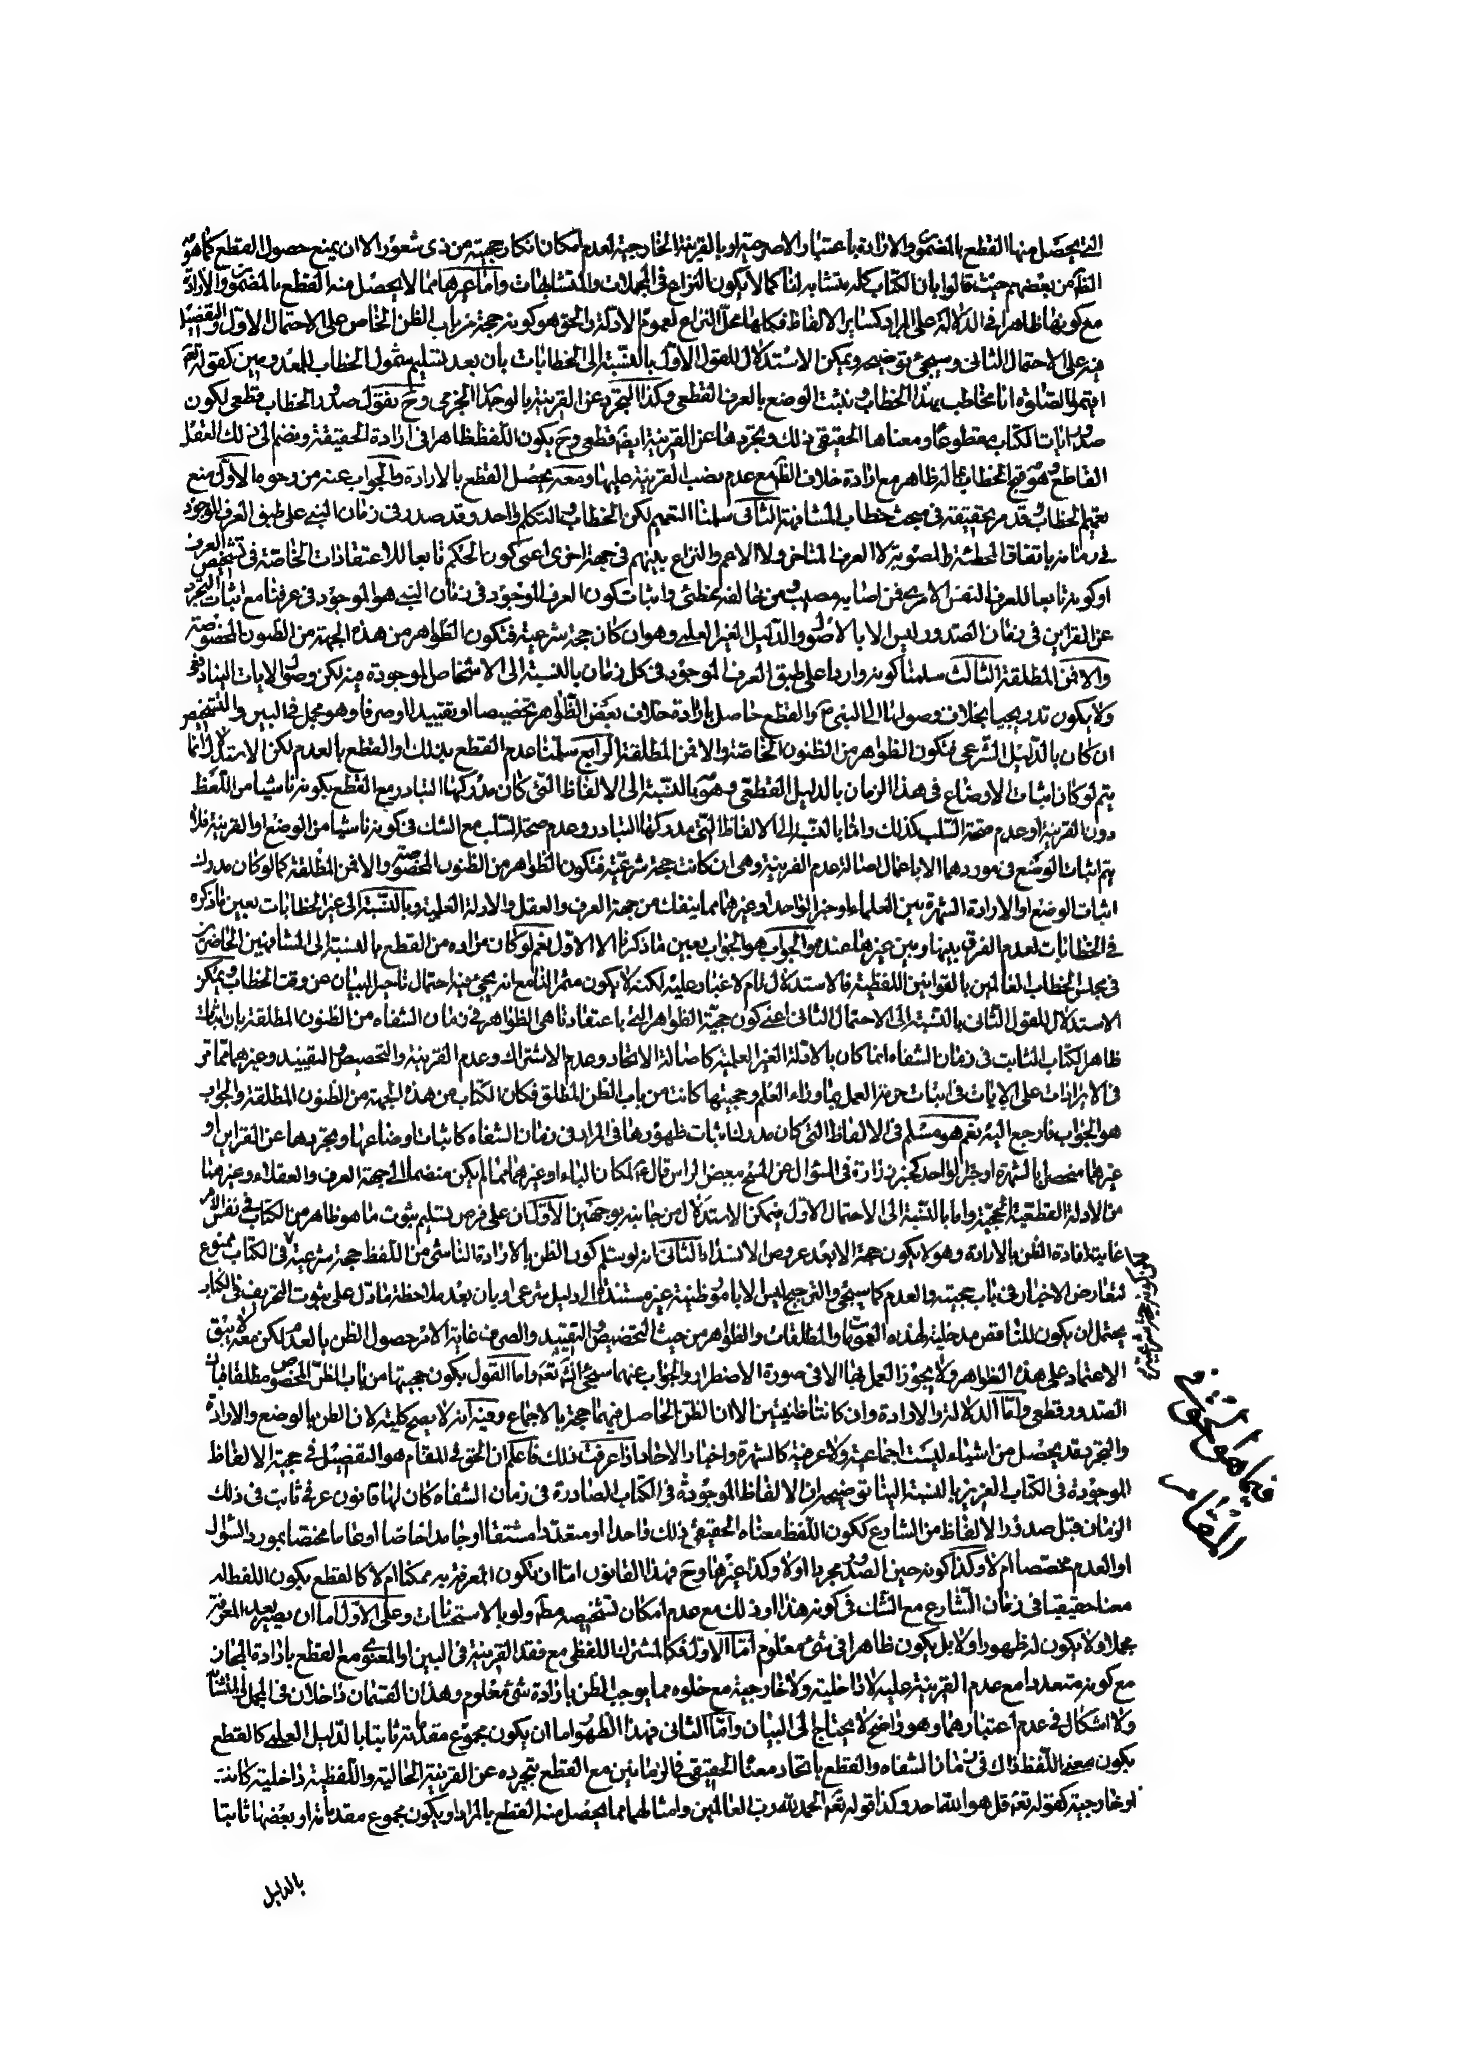 التى يحصل منها القطع بالمضمون والارادة باعتبار الاصرحية او بالقرينة الخارجية لعدم امكان انكار حجيته من ذى شعور الا ان يمنع حصول القطع كما هو
الظ من بعضهم حيث قالوا بان الكتاب كله متشابه لنا كما لا يكون النزاع فى المجملات والمتشابهات واما غيرهما مما لا يحصل منه القطع بالمضمون والارادة
مع كونها ظاهرا فى الدلالة على المراد كسائر الالفاظ فكلها محل النزاع لعموم الادلة والحق هو كونه حجة من باب الظن الخاص على الاحتمال الاول والتفصيل
فيه على الاحتمال الثانى وسيجئ توضيحه ويمكن الاستدلال للقول الاول بالنسبة الى الخطابات بان بعد تسليم شمول الخطاب للمعدومين كقوله تعم
اقيموا الصلوة انا مخاطب بهذا الخطاب ونثبت الوضع بالعرف القطعى وكذا التجرد عن القرينة بالوجدان الجزمى وح نقول صدور الخطاب قطعى لكون
صدور ايات الكتاب مقطوعا ومعناها الحقيقى ذلك وتجردها عن القرينة ايضا قطعى وح يكون اللفظ ظاهرا فى ارادة الحقيقة ويضم الى ذلك العقل
القاطع وهو قبح الخطاب بما له ظاهر مع ارادة خلاف الظ مع عدم نصب القرينة عليها ومعه يحصل القطع بالارادة والجواب عنه من وجوه الاول منع
تعميم الخطاب وقد مر تحقيقه فى مبحث خطاب المشافهة الثانى سلمنا التعميم لكن الخطاب والتكلم واحد وقد صدر فى زمان النبى على طبق العرف الموجود
فى زمانه باتفاق المخطئة والمصوبة لا العرف المتاخر ولا الاعم والنزاع بينهم فى جهة اخرى اعنى كون الحكم تابعا للاعتقادات الخاصة فى تشخيص العرف
او كونه تابعا للعرف النفس الامرى فمن اصابه مصيب ومن خالفه مخطئ واثبات كون العرف الموجود فى زمان النبى هو الموجود فى عرفنا مع اثبات التجرد
عن القراين فى زمان الصدور ليس الا بالاصول والدليل الغير العلمى وهو ان كان حجة شرعية فتكون الظواهر من هذه الجهة من الظنون المخصوصة
والا فمن المطلقة الثالث سلمنا كونه واردا على طبق العرف الموجود فى كل زمان بالنسبة الى الاشخاص الموجودة فيه لكن وصول الايات الينا دفعى
ولا يكون تدريجيا بخلاف وصولها الى النبى ص والقطع حاصل بارادة خلاف بعض الظواهر تخصيصا او تقييدا او صرفا وهو مجمل فى البين والتشخيص
ان كان بالدليل الشرعى فتكون الظواهر من الظنون الخاصة والا فمن المطلقة الرابع سلمنا عدم القطع بذلك او القطع بالعدم لكن الاستدلال انما
يتم لو كان اثبات الاوضاع فى هذا الزمان بالدليل القطعى وهو بالنسبة الى الالفاظ التى كان مدركها التبادر مع القطع بكونه ناشيا من اللفظ
دون القرينة او عدم صحة السلب كذلك واما بالنسبة الى الالفاظ التى مدركها التبادر وعدم صحة السلب مع الشك فى كونه ناشيا من الوضع او القرينة فلا
يتم اثبات الوضع فى موردهما الا باعمال اصالة عدم القرينة وهى ان كانت حجة شرعية فتكون الظواهر من الظنون المخصوصة والا فمن المطلقة كما لو كان مدرك
اثبات الوضع او الارادة الشهرة بين العلماء او خبر الواحد او غيرهما مما ينفك من جهة العرف والعقل والادلة العلمية وبالنسبة الى غير الخطابات بعين ما ذكره
فى الخطابات لعدم الفرق بينها وبين غيرها عنده والجواب هو الجواب بعين ما ذكرنا الا الاول نعم لو كان مراده من القطع بالنسبة الى المشافهين الحاضرين
فى مجلس الخطاب العالمين بالقوانين اللفظية فالاستدلال تام لا غبار عليه لكنه لا يكون مثمرا لنا مع انه يجئ فيه احتمال تاخير البيان عن وقت الخطاب ويمكن
الاستدلال للقول الثانى بالنسبة الى الاحتمال الثانى اعنى كون حجية الظواهر التى باعتقادنا هى الظواهر فى زمان الشفاه من الظنون المطلقة بان اثبات
ظاهر الكتاب الثابت فى زمان الشفاه انما كان بالادلة الغير العلمية كاصالة الاتحاد وعدم الاشتراك وعدم القرينة والتخصيص والتقييد وغيرهما مما مر
فى الايرادات على الايات فى اثبات حرمة العمل بما وراء العلم وحجيتها كانت من باب الظن المطلق فكان الكتاب من هذه الجهة من الظنون المطلقة والجواب
هو الجواب فارجع اليه نعم هو مسلم فى الالفاظ التى كان مدرك اثبات ظهورها فى المراد فى زمان الشفاه كاثبات اوضاعها وتجردها عن القراين او
غيرهما منحصرا بالشهرة او خبر الواحد كخبر زرارة فى السؤال عن المسح ببعض الراس قال ع لمكان الباء او غيرهما مما لم يكن منضما الى جهة العرف والعقلاء وغيرهما
من الادلة القطعية الحجية واما بالنسبة الى الاحتمال الاول فيمكن الاستدلال من جانبه بوجهين الاول ان على فرض تسليم ثبوت ما هو ظاهر من الكتاب فى نفس الامر
غاية افادة الظن بالارادة وهو لا يكون حجة الا بعد عروض الانسداد الثانى انه لو سلم كون الظن بالارادة الناشى من اللفظ حجة شرعية فى الكتاب ممنوع
لتعارض الاخبار فى باب حجيته والعدم كما سيجئ والترجيح ليس الا بامور ظنية غير مستندة الى دليل شرعى او بان بعد ملاحظة ما دل على ثبوت التحريف فى الكتاب
يحتمل ان يكون للناقص مدخلية لهذه العمومات والمطلقات والظواهر من حيث التخصيص والتقييد والصرف غاية الامر حصول الظن بالعدم لكن معه لا يبق
الاعتماد على هذه الظواهر ولا يجوز العمل بها الا فى صورة الاضطرار والجواب عنهما سيجئ انش تعه واما القول بكون حجيتها من باب الظن المخصوص مطلقا فبان
الصدور قطعى واما الدلالة والارادة وان كانتا ظنيتين الا ان الظن الحاصل فيهما حجة بالاجماع وفيه انه لا يصح كلية لان الظن بالوضع والارادة
والتجرد قد يحصل من اشياء ليست اجماعية ولا عرفية كالشهرة واخبار الاحاد اذا عرفت ذلك فاعلم ان الحق فى المقام هو التفصيل فى حجية الالفاظ
الموجودة فى الكتاب العزيز بالنسبة الينا توضيحه ان الالفاظ الموجودة فى الكتاب الصادرة فى زمان الشفاه كان لها قانون عرفى ثابت فى ذلك
الزمان قبل صدور الالفاظ من الشارع ككون اللفظ معناه الحقيقى ذلك واحدا او متعددا مشتقا او جامدا خاصا او عاما مختصا بمورد السؤال
او العدم مخصصا ام لا وكذا كونه حين الصدور مجردا او لا وكذا غيرها وح فهذا القانون اما ان يكون المعرفة به ممكنا ام لا كالقطع بكون اللفظ له
معنا حقيقيا فى زمان الشارع مع الشك فى كونه هذا او ذلك مع عدم امكان تشخيصه مط ولو بالاستحسانات وعلى الاول اما ان يصير بعد المعرفة
مجملا ولا يكون له ظهور او لا بل يكون ظاهرا فى شئ معلوم اما الاول فكالمشترك اللفظى مع فقد القرينة فى البين او المعنوى مع القطع بارادة المجاز
مع كونه متعددا مع عدم القرينة عليه لا داخلية ولا خارجية مع خلوه مما يوجب الظن بارادة شئ معلوم وهذان القسمان داخلان فى المجمل والمتشابه
ولا اشكال فى عدم اعتبارهما وهو واضح لا يحتاج الى البيان واما الثانى فهذا الظهور اما ان يكون مجموع مقدماته ثابتا بالدليل العلمى كالقطع
بكون معنى اللفظ ذاك فى زمان الشفاه والقطع باتحاد معناه الحقيقى فى الزمانين مع القطع بتجرده عن القرينة الحالية واللفظية داخلية كانت
او خارجية كقوله تعه قل هو الله احد وكذا قوله تعه الحمد لله رب العالمين وامثالهما مما يحصل منه القطع بالمراد او يكون مجموع مقدماته او بعضها ثابتا
بالدليل
فيما هو التحقيق فى
المقام